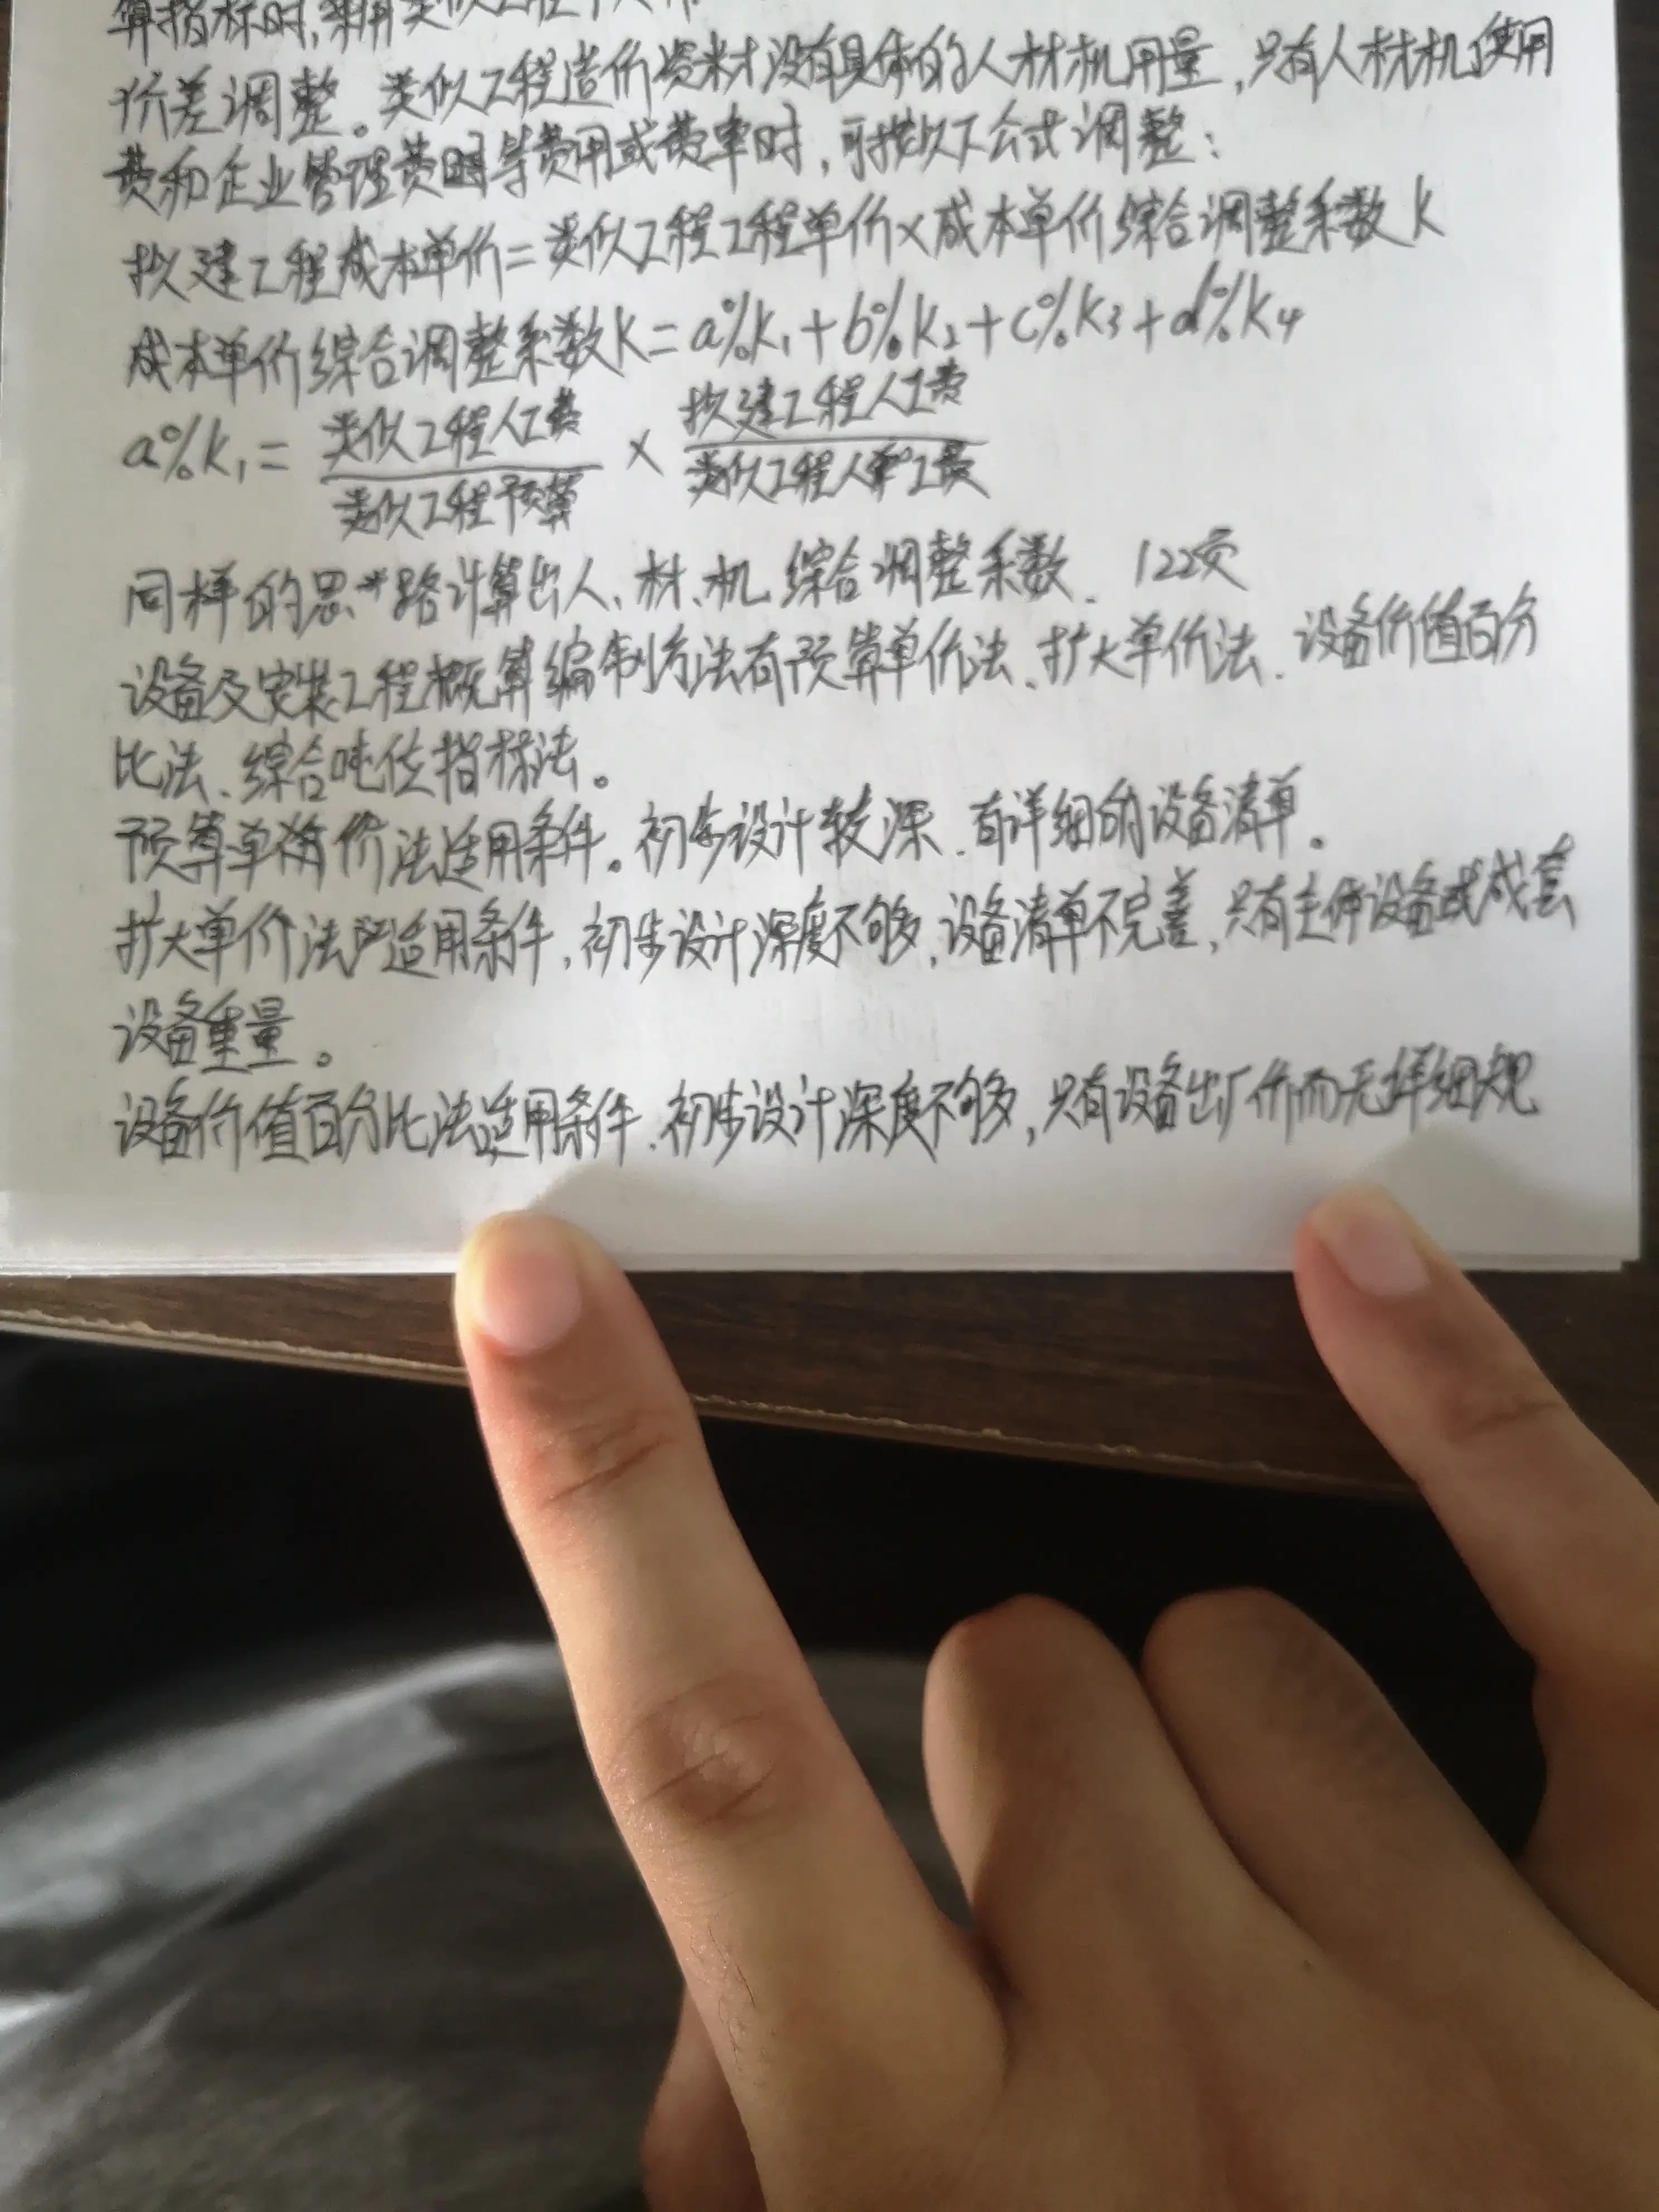 算指标时,采用类似工程
价差调整。类似工程造价资料才没有具体的人材机用量,只有人材机使用
费和企业管理费等费用或费率时,可按以下公式调整:
拟建工程成本单价=类似工程工程单价×成本单价综合调整系数k
成本单价综合调整系数k=a%k₁+b%k₂+c%k₃+d%k₄
a%k₁= 类似工程人工费/类似工程预算 × 拟建工程人工费/类似工程人工费
同样的思路计算出人、材、机 综合调整系数. 122页
设备及安装工程概算编制方法有预算单价法、扩大单价法、设备价值百分
比法、综合吨位指标法。
预算单价法适用条件。初步设计较深、有详细的设备清单。
扩大单价法适用条件,初步设计深度不够,设备清单不完善,只有主体设备或成套
设备重量。
设备价值百分比法适用条件.初步设计深度不够,只有设备出厂价而无详细规